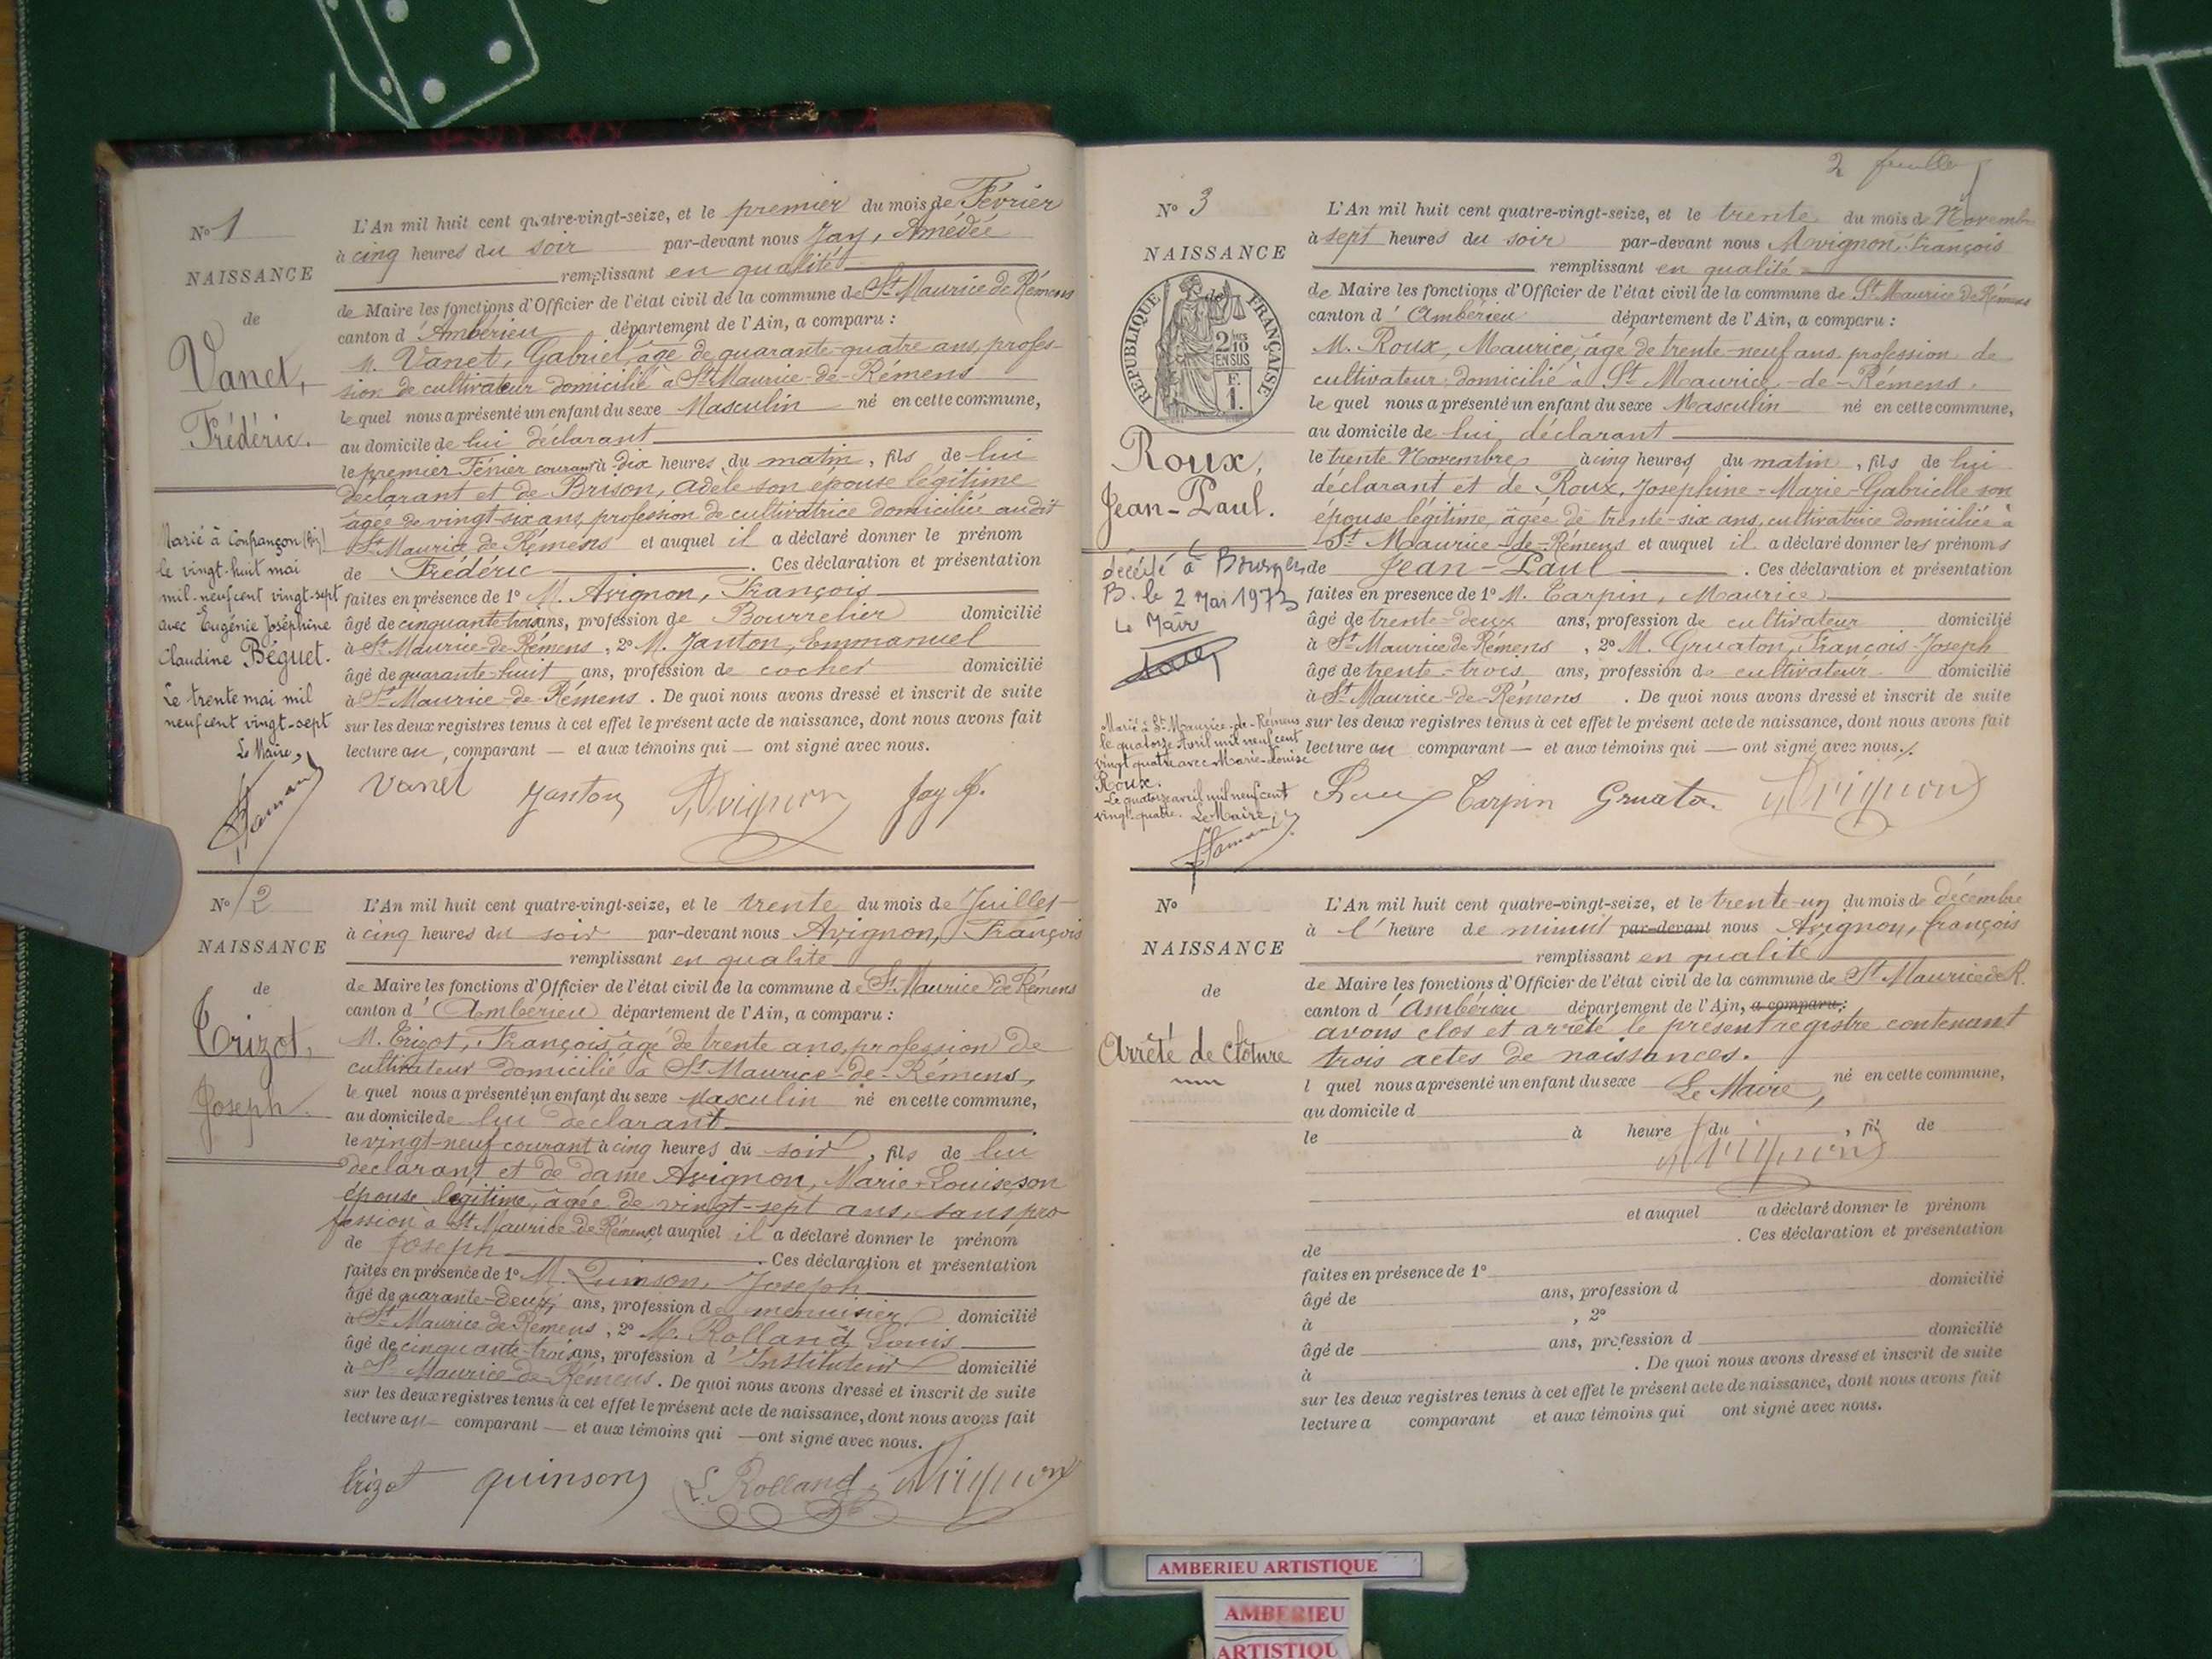 N° 1
NAISSANCE
de
Vanet,
Frédéric.
Marié à Confrançon (Ain)
le vingt-huit mai
mil-neufcent vingt-sept
avec Eugénie Joséphine
Claudine Béguet.
Le trente mai mil
neufcent vingt-sept
Le Maire,
L'An mil huit cent quatre-vingt-seize, et le premier du mois de Février
à cinq heures du soir par-devant nous Jay, Amédée
remplissant en qualité
de Maire les fonctions d'Officier de l'état civil de la commune de St Maurice de Rémens
canton d'Ambérieu département de l'Ain, a comparu :
M. Vanet, Gabriel, âgé de quarante-quatre ans, profes-
sion de cultivateur domicilié à St Maurice-de-Rémens
le quel nous a présenté un enfant du sexe Masculin né en cette commune,
au domicile de lui déclarant
le premier Février courant à dix heures du matin, fils de lui
déclarant et de Brison, Adèle son épouse légitime
âgée de vingt-six ans, profession de cultivatrice domiciliée audit
St Maurice de Rémens et auquel il a déclaré donner le prénom
de Frédéric . Ces déclaration et présentation
faites en présence de 1° M. Avignon, François
âgé de cinquante-trois ans, profession de Bourrelier domicilié
à St Maurice-de-Rémens, 2° M. Janton, Emmanuel
âgé de quarante-huit ans, profession de cocher domicilié
à St Maurice-de-Rémens. De quoi nous avons dressé et inscrit de suite
sur les deux registres tenus à cet effet le présent acte de naissance, dont nous avons fait
lecture au comparant — et aux témoins qui — ont signé avec nous.
Vanet Janton Avignon Jay A.
N° 2
NAISSANCE
de
Trizot,
Joseph.
L'An mil huit cent quatre-vingt-seize, et le trente du mois de Juillet
à cinq heures du soir par-devant nous Avignon, François
remplissant en qualité
de Maire les fonctions d'Officier de l'état civil de la commune de St Maurice de Rémens
canton d'Ambérieu département de l'Ain, a comparu :
M. Trizot, François, âgé de trente ans, profession de
cultivateur domicilié à St Maurice-de-Rémens,
le quel nous a présenté un enfant du sexe Masculin né en cette commune,
au domicile de lui déclarant
le vingt-neuf courant à cinq heures du soir, fils de lui
déclarant et de dame Avignon, Marie-Louise, son
épouse légitime, âgée de vingt-sept ans, sans pro-
fession à St Maurice de Rémens et auquel il a déclaré donner le prénom
de Joseph . Ces déclaration et présentation
faites en présence de 1° M. Quinson, Joseph
âgé de quarante-deux ans, profession de menuisier domicilié
à St Maurice de Rémens, 2° M. Rolland Louis
âgé de cinquante-trois ans, profession d'Instituteur domicilié
à St Maurice de Rémens. De quoi nous avons dressé et inscrit de suite
sur les deux registres tenus à cet effet le présent acte de naissance, dont nous avons fait
lecture au — comparant — et aux témoins qui — ont signé avec nous.
Trizot quinson L. Rolland Avignon
2 feuille
N° 3
NAISSANCE
de
REPUBLIQUE FRANÇAISE
2/10 EN SUS
F.
1.
Roux,
Jean-Paul.
décédé à Bourg en
B. le 2 Mai 1973
Le Maire
Marié à St Maurice-de-Rémens
le quatorze Avril mil neuf cent
vingt quatre avec Marie-Louise
Roux.
Le quatorze avril mil neuf cent
vingt-quatre. Le Maire,
L'An mil huit cent quatre-vingt-seize, et le trente du mois de Novembre
à sept heures du soir par-devant nous Avignon, François
remplissant en qualité
de Maire les fonctions d'Officier de l'état civil de la commune de St Maurice de Rémens
canton d'Ambérieu département de l'Ain, a comparu :
M. Roux, Maurice, âgé de trente-neuf ans, profession de
cultivateur, domicilié à St Maurice-de-Rémens.
le quel nous a présenté un enfant du sexe Masculin né en cette commune,
au domicile de lui, déclarant
le trente Novembre à cinq heures du matin, fils de lui
déclarant et de Roux, Joséphine-Marie-Gabrielle son
épouse légitime, âgée de trente-six ans, cultivatrice domiciliée à
St Maurice-de-Rémens et auquel il a déclaré donner les prénoms
de Jean-Paul . Ces déclaration et présentation
faites en présence de 1° M. Tarpin, Maurice
âgé de trente-deux ans, profession de cultivateur domicilié
à St Maurice de Rémens, 2° M. Gruaton, François-Joseph
âgé de trente-trois ans, profession de cultivateur domicilié
à St Maurice-de-Rémens. De quoi nous avons dressé et inscrit de suite
sur les deux registres tenus à cet effet le présent acte de naissance, dont nous avons fait
lecture au comparant — et aux témoins qui — ont signé avec nous.
Roux Tarpin Gruaton Avignon
N°
NAISSANCE
de
Arrêté de clôture
L'An mil huit cent quatre-vingt-seize, et le trente-un du mois de décembre
à l'heure de minuit par-devant nous Avignon, françois
remplissant en qualité
de Maire les fonctions d'Officier de l'état civil de la commune de St Maurice de R.
canton d'Ambérieu département de l'Ain, a comparu :
avons clos et arrêté le présent registre contenant
trois actes de naissances.
l quel nous a présenté un enfant du sexe Le Maire, né en cette commune,
au domicile d
le à heure du , fi de
Avignon
et auquel a déclaré donner le prénom
de . Ces déclaration et présentation
faites en présence de 1°
âgé de ans, profession d domicilié
à , 2°
âgé de ans, profession d domicilié
à . De quoi nous avons dressé et inscrit de suite
sur les deux registres tenus à cet effet le présent acte de naissance, dont nous avons fait
lecture a comparant et aux témoins qui ont signé avec nous.
AMBERIEU ARTISTIQUE
AMBERIEU
ARTISTIQU